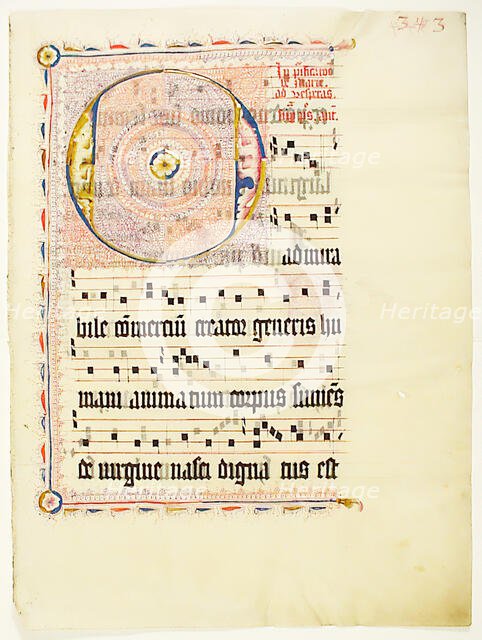 343
In purificatione
be Marie.
ad vesperas.
O
admira
bile cōmerciū creator generis hu
mani animatum corpus sumēs
de uirgine nasci digna tus est
Heritage
Heritage
Heritage
Heritage